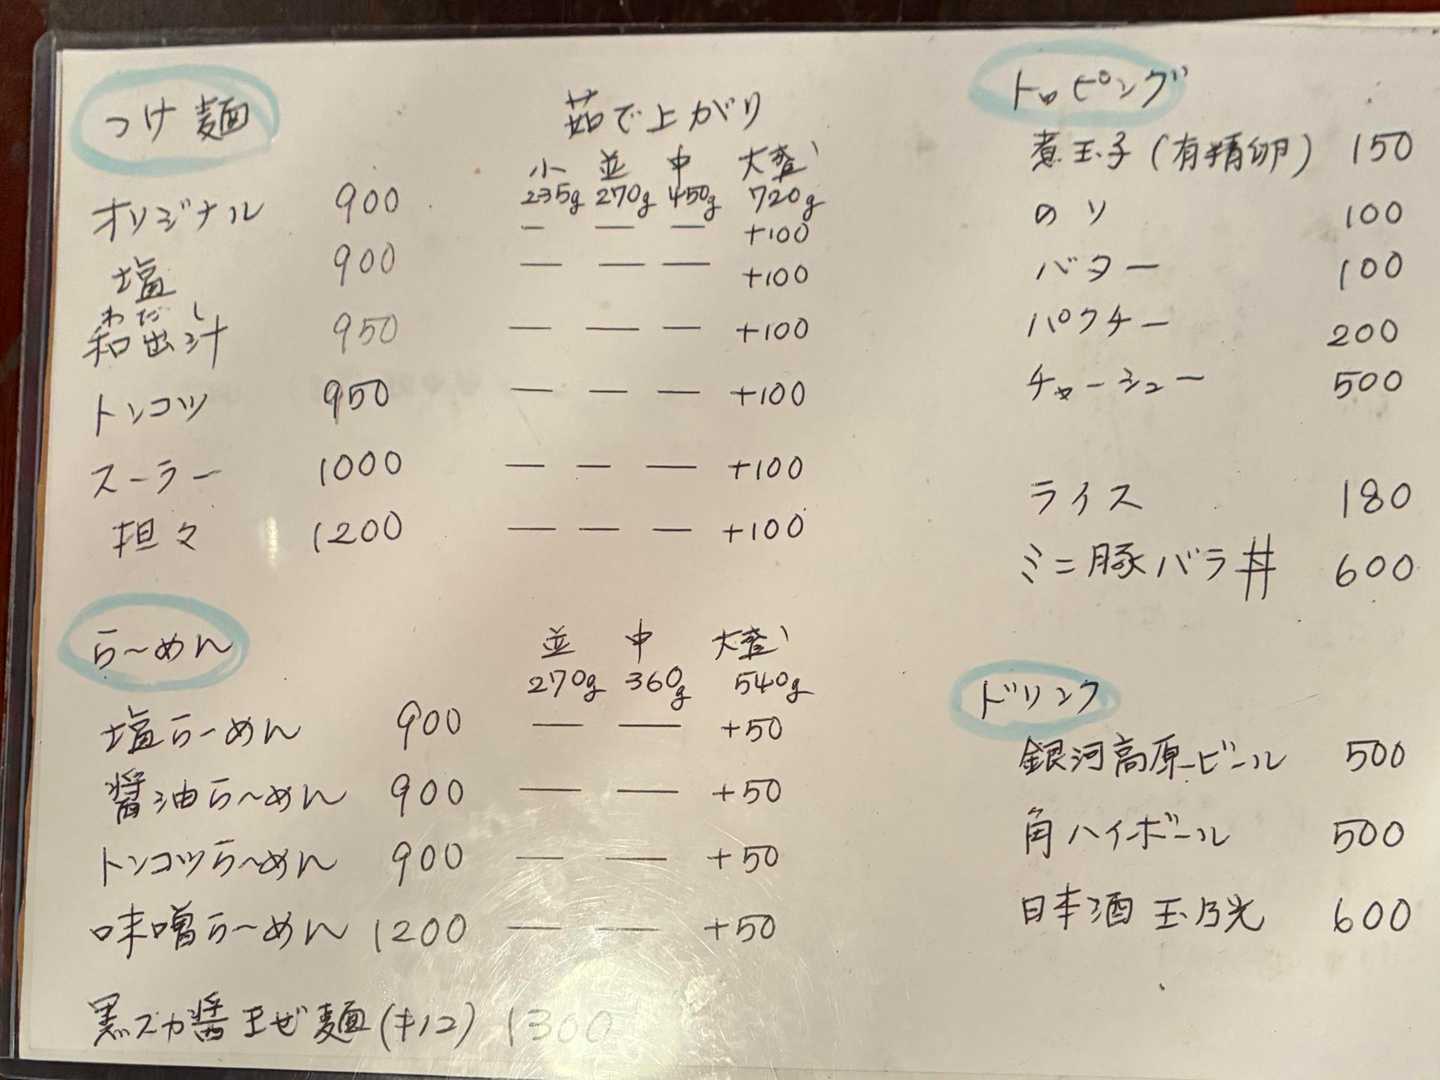 つけ麺
茹で上がり
小 並 中 大盛
235g 270g 450g 720g
オリジナル 900 — — — +100
塩 900 — — — +100
わだし
和出汁 950 — — — +100
トンコツ 950 — — — +100
スーラー 1000 — — — +100
担々 1200 — — — +100
らーめん
並 中 大盛
270g 360g 540g
塩らーめん 900 — — +50
醤油らーめん 900 — — +50
トンコツらーめん 900 — — +50
味噌らーめん 1200 — — +50
醤まぜ麺 1300
トッピング
煮玉子(有精卵) 150
のり 100
バター 100
パクチー 200
チャーシュー 500
ライス 180
ミニ豚バラ丼 600
ドリンク
銀河高原ビール 500
角ハイボール 500
日本酒 玉乃光 600